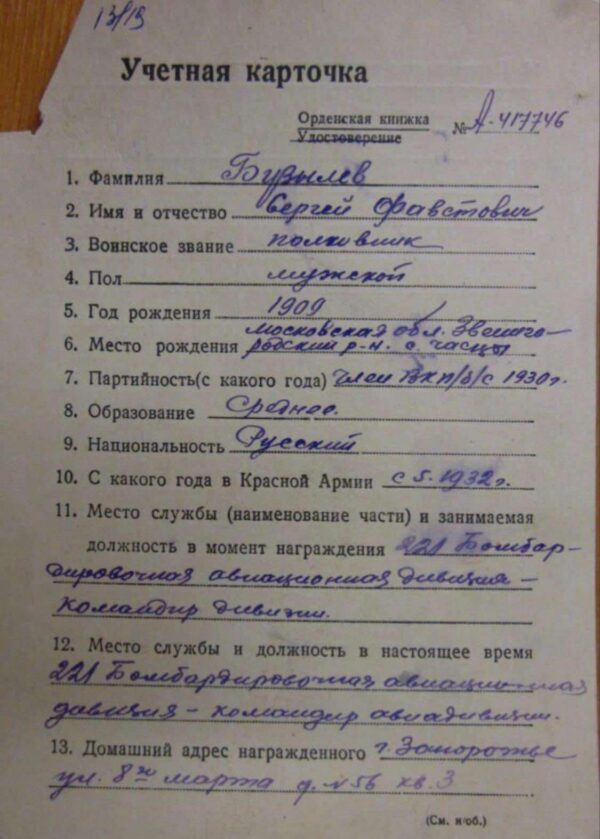 13/19
Учетная карточка
Орденская книжка
Удостоверение
№ А-417746
1. Фамилия Бузылев
2. Имя и отчество Сергей Фавстович
3. Воинское звание полковник
4. Пол мужской
5. Год рождения 1909
Московская обл. Звениго-
6. Место рождения родский р-н. с. Часцы
7. Партийность(с какого года) член ВКП/б/с 1930г.
8. Образование Среднее.
9. Национальность Русский
10. С какого года в Красной Армии с 5. 1932г.
11. Место службы (наименование части) и занимаемая
должность в момент награждения 221 Бомбар-
дировочная авиационная дивизия –
командир дивизии.
12. Место службы и должность в настоящее время
221 Бомбардировочная авиационная
дивизия – командир авиадивизии.
13. Домашний адрес награжденного г. Запорожье
ул. 8го марта д. №56 кв. 3
(См. н об.)